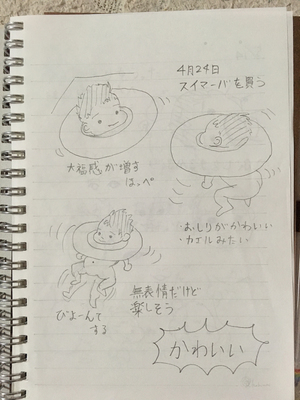 4月24日
スイマーバを買う
大福感が増す
ほっぺ
・おしりがかわいい
・カエルみたい
びよーんて
する
無表情だけど
楽しそう
かわいい